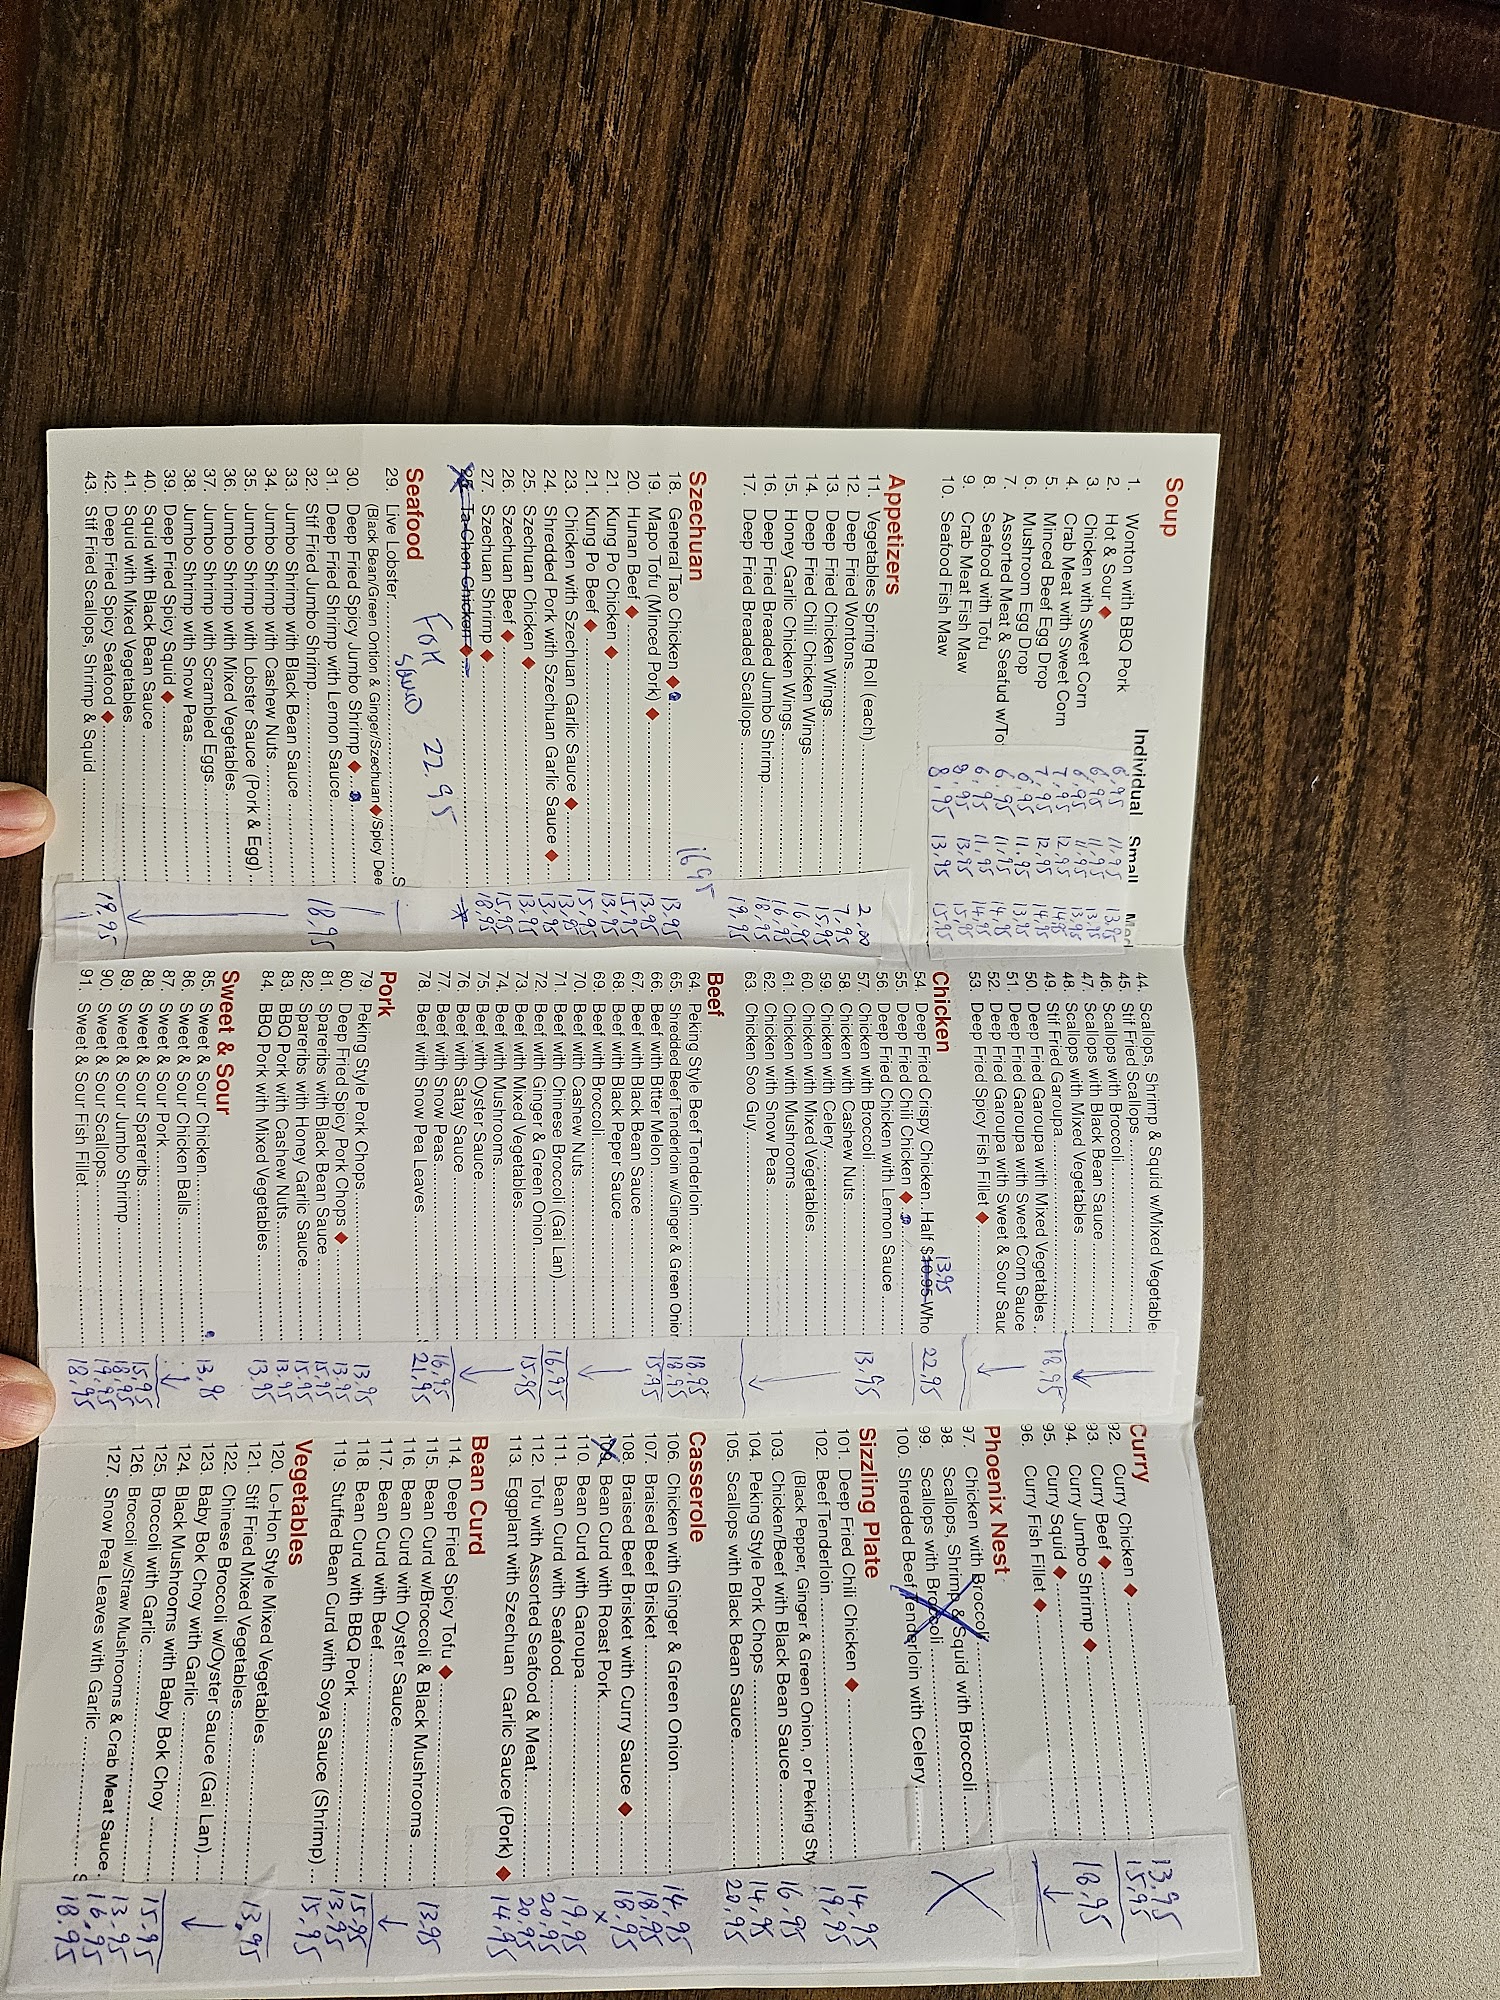 Soup
Individual Small Med
1. Wonton with BBQ Pork 6.95 11.95 13.95
2. Hot & Sour 6.95 11.95 13.95
3. Chicken with Sweet Corn 6.95 11.95 13.95
4. Crab Meat with Sweet Corn 7.95 12.95 14.95
5. Minced Beef Egg Drop 7.95 12.95 14.95
6. Mushroom Egg Drop 6.95 11.95 13.95
7. Assorted Meat & Seafud w/To 6.95 11.95 14.95
8. Seafood with Tofu 6.95 11.95 14.95
9. Crab Meat Fish Maw 8.95 13.95 15.95
10. Seafood Fish Maw 8.95 13.95 15.95
Appetizers
11. Vegetables Spring Roll (each) 2.00
12. Deep Fried Wontons 7.95
13. Deep Fried Chicken Wings 15.95
14. Deep Fried Chili Chicken Wings 16.95
15. Honey Garlic Chicken Wings 16.95
16. Deep Fried Breaded Jumbo Shrimp 18.95
17. Deep Fried Breaded Scallops 19.95
16.95
Szechuan
18. General Tao Chicken 13.95
19. Mapo Tofu (Minced Pork) 13.95
20. Hunan Beef 15.95
21. Kung Po Chicken 13.95
21. Kung Po Beef 15.95
23. Chicken with Szechuan Garlic Sauce 13.95
24. Shredded Pork with Szechuan Garlic Sauce 13.95
25. Szechuan Chicken 13.95
26. Szechuan Beef 15.95
27. Szechuan Shrimp 18.95
28. Ta-Chen Chicken
Seafood
22.95
29. Live Lobster S
(Black Bean/Green Onion & Ginger/Szechuan/Spicy Dee
30. Deep Fried Spicy Jumbo Shrimp
31. Deep Fried Shrimp with Lemon Sauce
32. Stif Fried Jumbo Shrimp 18.95
33. Jumbo Shrimp with Black Bean Sauce
34. Jumbo Shrimp with Cashew Nuts
35. Jumbo Shrimp with Lobster Sauce (Pork & Egg)
36. Jumbo Shrimp with Mixed Vegetables
37. Jumbo Shrimp with Scrambled Eggs
38. Jumbo Shrimp with Snow Peas
39. Deep Fried Spicy Squid
40. Squid with Black Bean Sauce
41. Squid with Mixed Vegetables
42. Deep Fried Spicy Seafood 19.95
43. Stif Fried Scallops, Shrimp & Squid
44. Scallops, Shrimp & Squid w/Mixed Vegetable
45. Stif Fried Scallops
46. Scallops with Broccoli
47. Scallops with Black Bean Sauce
48. Scallops with Mixed Vegetables
49. Stif Fried Garoupa 18.95
50. Deep Fried Garoupa with Mixed Vegetables
51. Deep Fried Garoupa with Sweet Corn Sauce
52. Deep Fried Garoupa with Sweet & Sour Sauc
53. Deep Fried Spicy Fish Fillet
Chicken
13.95
54. Deep Fried Crispy Chicken Half $10.95 Who 22.95
55. Deep Fried Chili Chicken
56. Deep Fried Chicken with Lemon Sauce
57. Chicken with Broccoli 13.95
58. Chicken with Cashew Nuts
59. Chicken with Celery
60. Chicken with Mixed Vegetables
61. Chicken with Mushrooms
62. Chicken with Snow Peas
63. Chicken Soo Guy
Beef
64. Peking Style Beef Tenderloin 18.95
65. Shredded Beef Tenderloin w/Ginger & Green Onion 18.95
66. Beef with Bitter Melon 15.95
67. Beef with Black Bean Sauce
68. Beef with Black Peper Sauce
69. Beef with Broccoli
70. Beef with Cashew Nuts
71. Beef with Chinese Broccoli (Gai Lan) 16.95
72. Beef with Ginger & Green Onion
73. Beef with Mixed Vegetables 15.95
74. Beef with Mushrooms
75. Beef with Oyster Sauce
76. Beef with Satay Sauce
77. Beef with Snow Peas 16.95
78. Beef with Snow Pea Leaves 21.95
Pork
79. Peking Style Pork Chops 13.95
80. Deep Fried Spicy Pork Chops 13.95
81. Spareribs with Black Bean Sauce 15.95
82. Spareribs with Honey Garlic Sauce 15.95
83. BBQ Pork with Cashew Nuts 13.95
84. BBQ Pork with Mixed Vegetables 13.95
Sweet & Sour
85. Sweet & Sour Chicken
86. Sweet & Sour Chicken Balls
87. Sweet & Sour Pork
88. Sweet & Sour Spareribs 15.95
89. Sweet & Sour Jumbo Shrimp 18.95
90. Sweet & Sour Scallops 19.95
91. Sweet & Sour Fish Fillet 18.95
Curry
92. Curry Chicken 13.95
93. Curry Beef 15.95
94. Curry Jumbo Shrimp
95. Curry Squid 18.95
96. Curry Fish Fillet
Phoenix Nest
97. Chicken with Broccoli
98. Scallops, Shrimp & Squid with Broccoli
99. Scallops with Broccoli
100. Shredded Beef Tenderloin with Celery
Sizzling Plate
101. Deep Fried Chili Chicken 14.95
102. Beef Tenderloin 19.95
(Black Pepper, Ginger & Green Onion, or Peking Sty
103. Chicken/Beef with Black Bean Sauce 16.95
104. Peking Style Pork Chops 14.95
105. Scallops with Black Bean Sauce 20.95
Casserole
106. Chicken with Ginger & Green Onion 14.95
107. Braised Beef Brisket 18.95
108. Braised Beef Brisket with Curry Sauce 18.95
109. Bean Curd with Roast Pork x
110. Bean Curd with Garoupa 19.95
111. Bean Curd with Seafood 20.95
112. Tofu with Assorted Seafood & Meat 20.95
113. Eggplant with Szechuan Garlic Sauce (Pork) 14.95
Bean Curd
114. Deep Fried Spicy Tofu 13.95
115. Bean Curd w/Broccoli & Black Mushrooms
116. Bean Curd with Oyster Sauce
117. Bean Curd with Beef 15.95
118. Bean Curd with BBQ Pork 13.95
119. Stuffed Bean Curd with Soya Sauce (Shrimp) 15.95
Vegetables
120. Lo-Hon Style Mixed Vegetables
121. Stif Fried Mixed Vegetables 13.95
122. Chinese Broccoli w/Oyster Sauce (Gai Lan)
123. Baby Bok Choy with Garlic
124. Black Mushrooms with Baby Bok Choy
125. Broccoli with Garlic 15.95
126. Broccoli w/Straw Mushrooms & Crab Meat Sauce 16.95
127. Snow Pea Leaves with Garlic 18.95